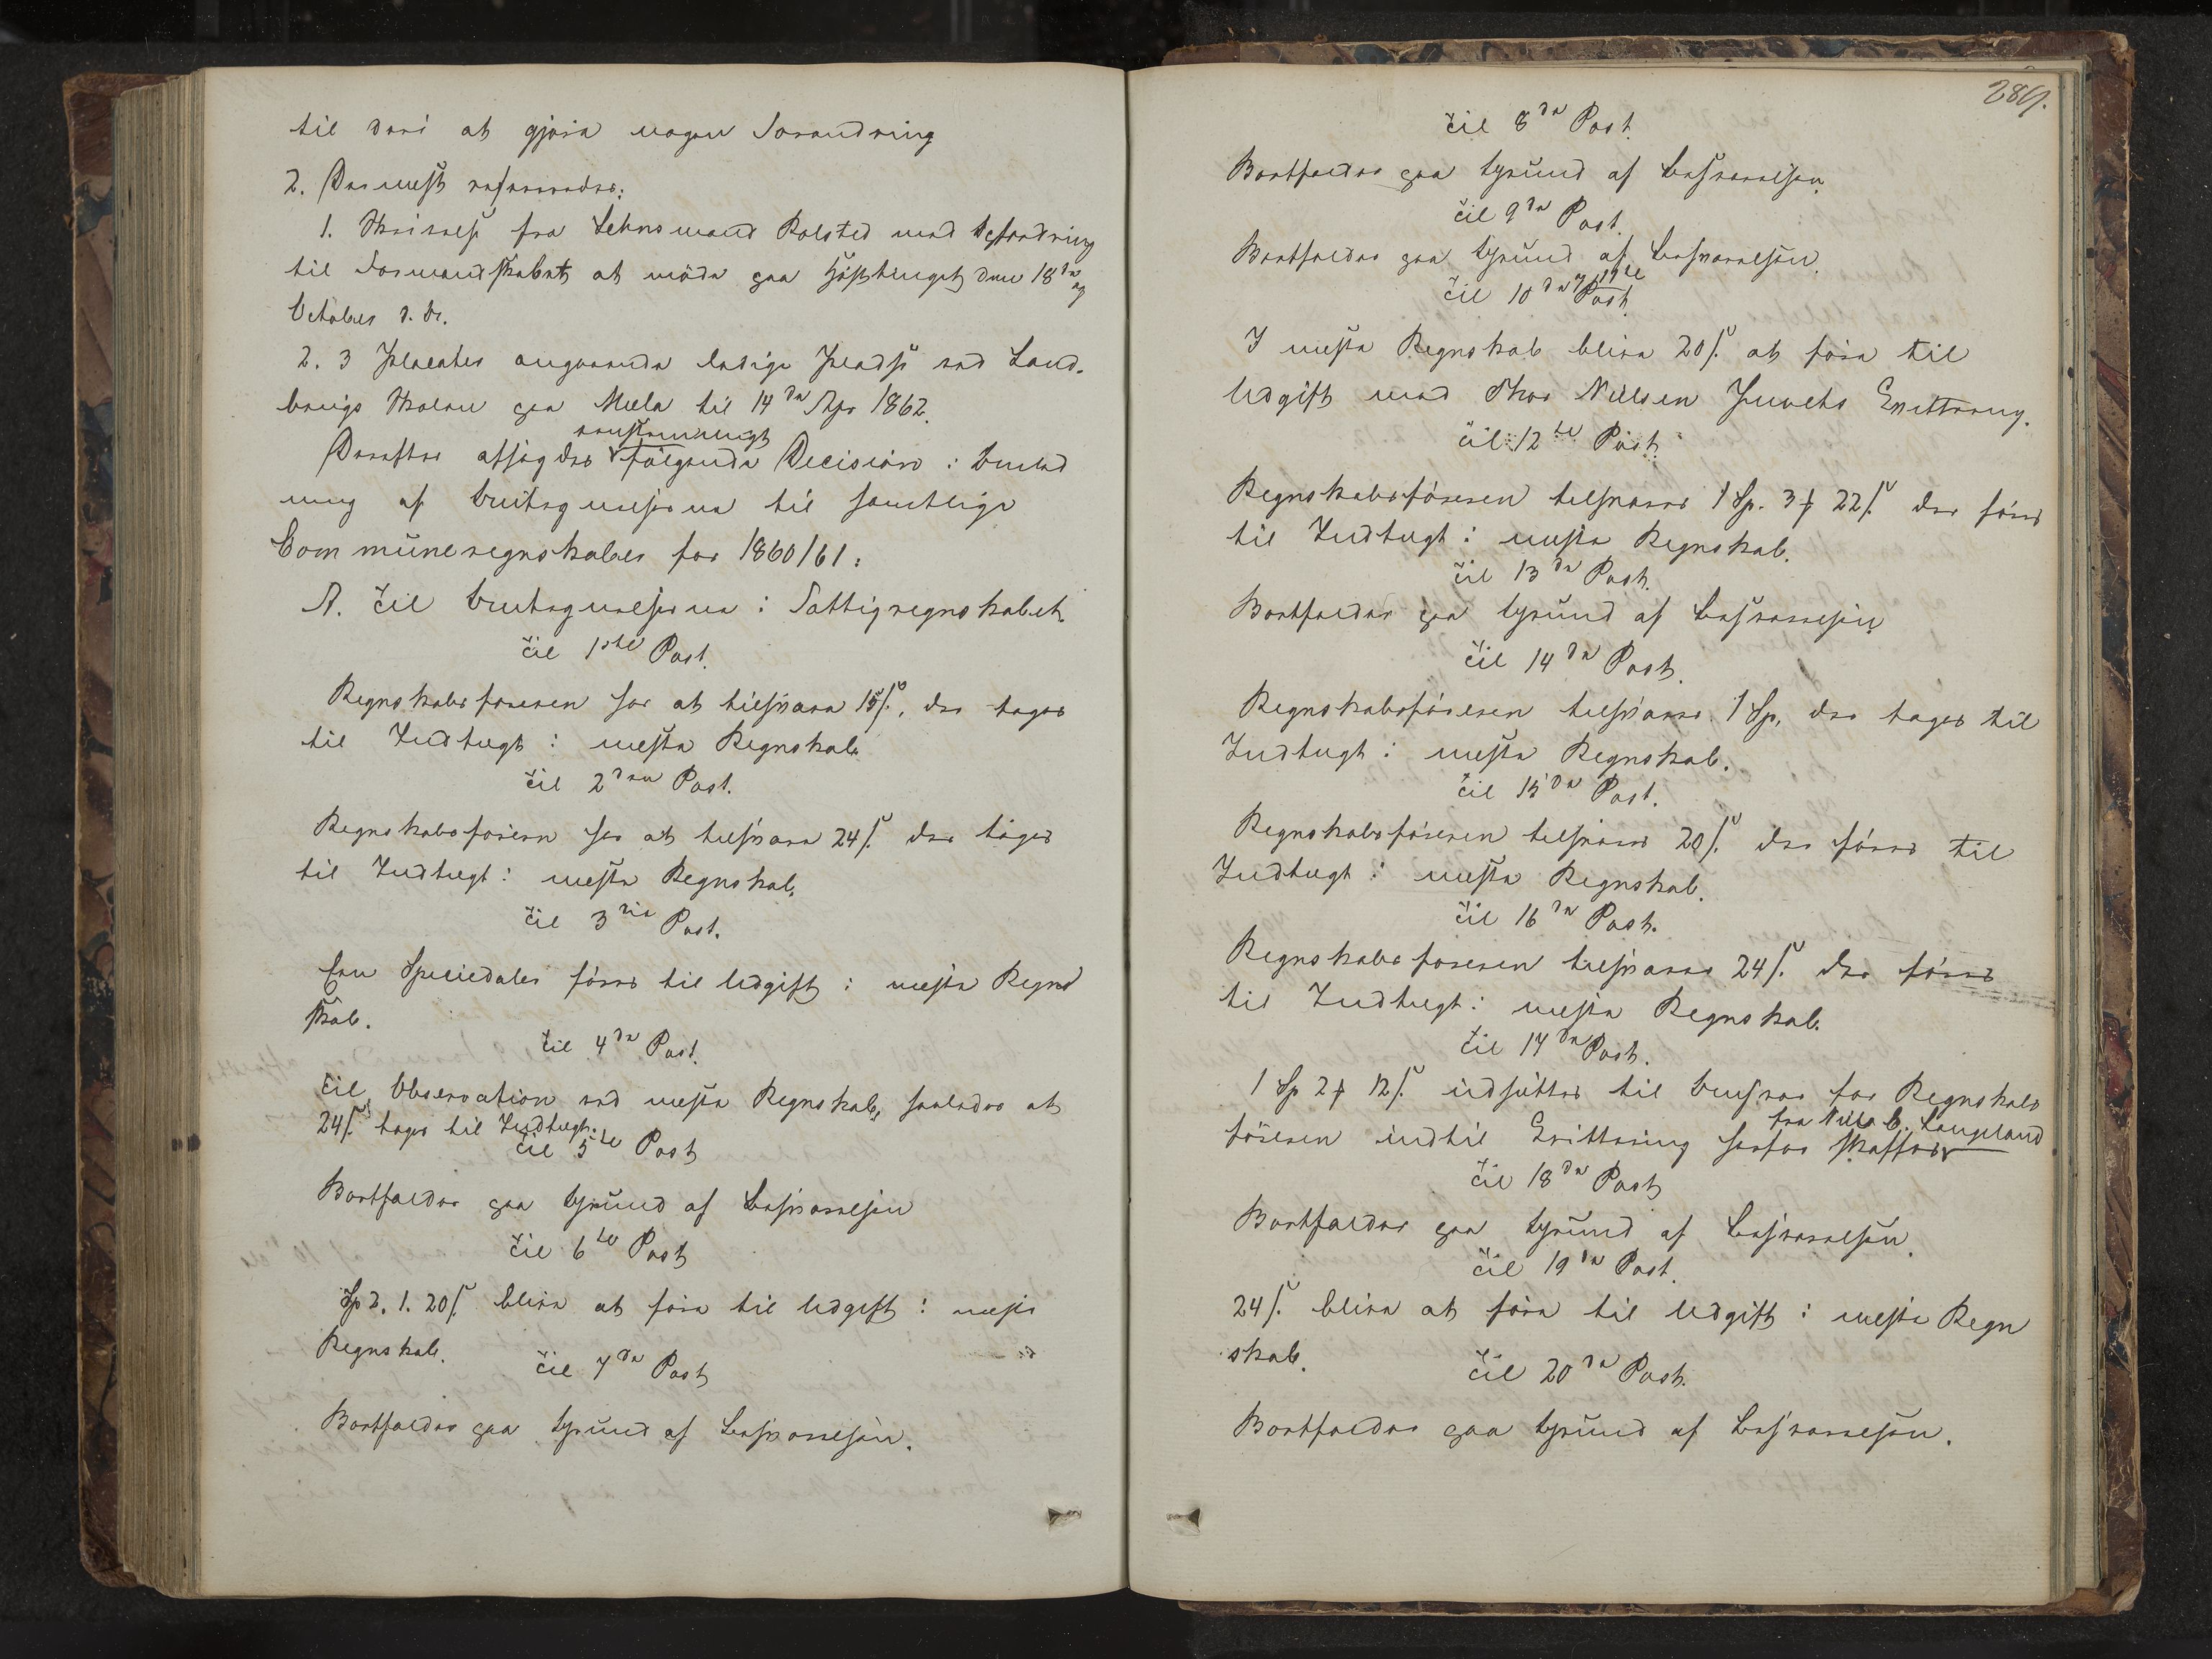 til deri at gjøre nogen Forandring
2. Dernest refereredes:
1. Skrivelse fra Lehnsmand Rolsted med Opfordring
til Formandskabet at møde paa Høstthinget den 18de og
October d. A.
2. 3 Placater angaaende ledige Pladse ved Land-
brugs Skolen paa Mæla til 14de Apr 1862.
eenstemmigt
Derefter afsagdes følgende Decision i Anled
ning af Antegnelserne til samtlige
Communeregnskaber for 1860/61:
A. Til Antegnelserne i Fattigregnskabet.
Til 1ste Post.
Regnskabsføreren har at tilsvare 15 ß, der tages
til Indtægt i næste Regnskab.
Til 2den Post.
Regnskabsføreren har at tilsvare 24 ß der tages
til Indtægt i næste Regnskab.
Til 3die Post.
Een Speciedaler føres til Udgift i næste Regn
skab.
Til 4de Post.
Til Observation ved næste Regnskab, saaledes at
24 ß tages til Indtægt.
Til 5te Post
Bortfalder paa Grund af Besvarelsen
Til 6te Post
Spd. 1. 20 ß blive at føre til Udgift i næste
Regnskab.
Til 7de Post
Bortfalder paa Grund af Besvarelsen.
289.
Til 8de Post.
Bortfalder paa Grund af Besvarelsen.
Til 9de Post.
Bortfalder paa Grund af Besvarelsen.
Til 10de og 11te Post.
I næste Regnskab blive 20 ß at føre til
Udgift med Thor Nielsen Qvittering.
Til 12te Post.
Regnskabsføreren tilsvarer 1 Sp. 3 ƒ 22 ß der føres
til Indtægt i næste Regnskab.
Til 13de Post.
Bortfalder paa Grund af Besvarelsen
Til 14de Post.
Regnskabsføreren tilsvarer 1 Sp, der tages til
Indtægt i næste Regnskab.
Til 15de Post.
Regnskabsføreren tilsvarer 20 ß der føres til
Indtægt i næste Regnskab.
Til 16de Post.
Regnskabsføreren tilsvarer 24 ß der føres
til Indtægt i næste Regnskab.
Til 17de Post.
1 Sp 2 ƒ 12 ß udsættes til Ansvar for Regnskabs
fra Nils C. Langeland
føreren indtil Qvittering herfor skaffes
Til 18de Post
Bortfalder paa Grund af Besvarelsen.
Til 19de Post.
24 ß blive at føre til Udgift i næste Regn
skab.
Til 20de Post.
Bortfalder paa Grund af Besvarelsen.